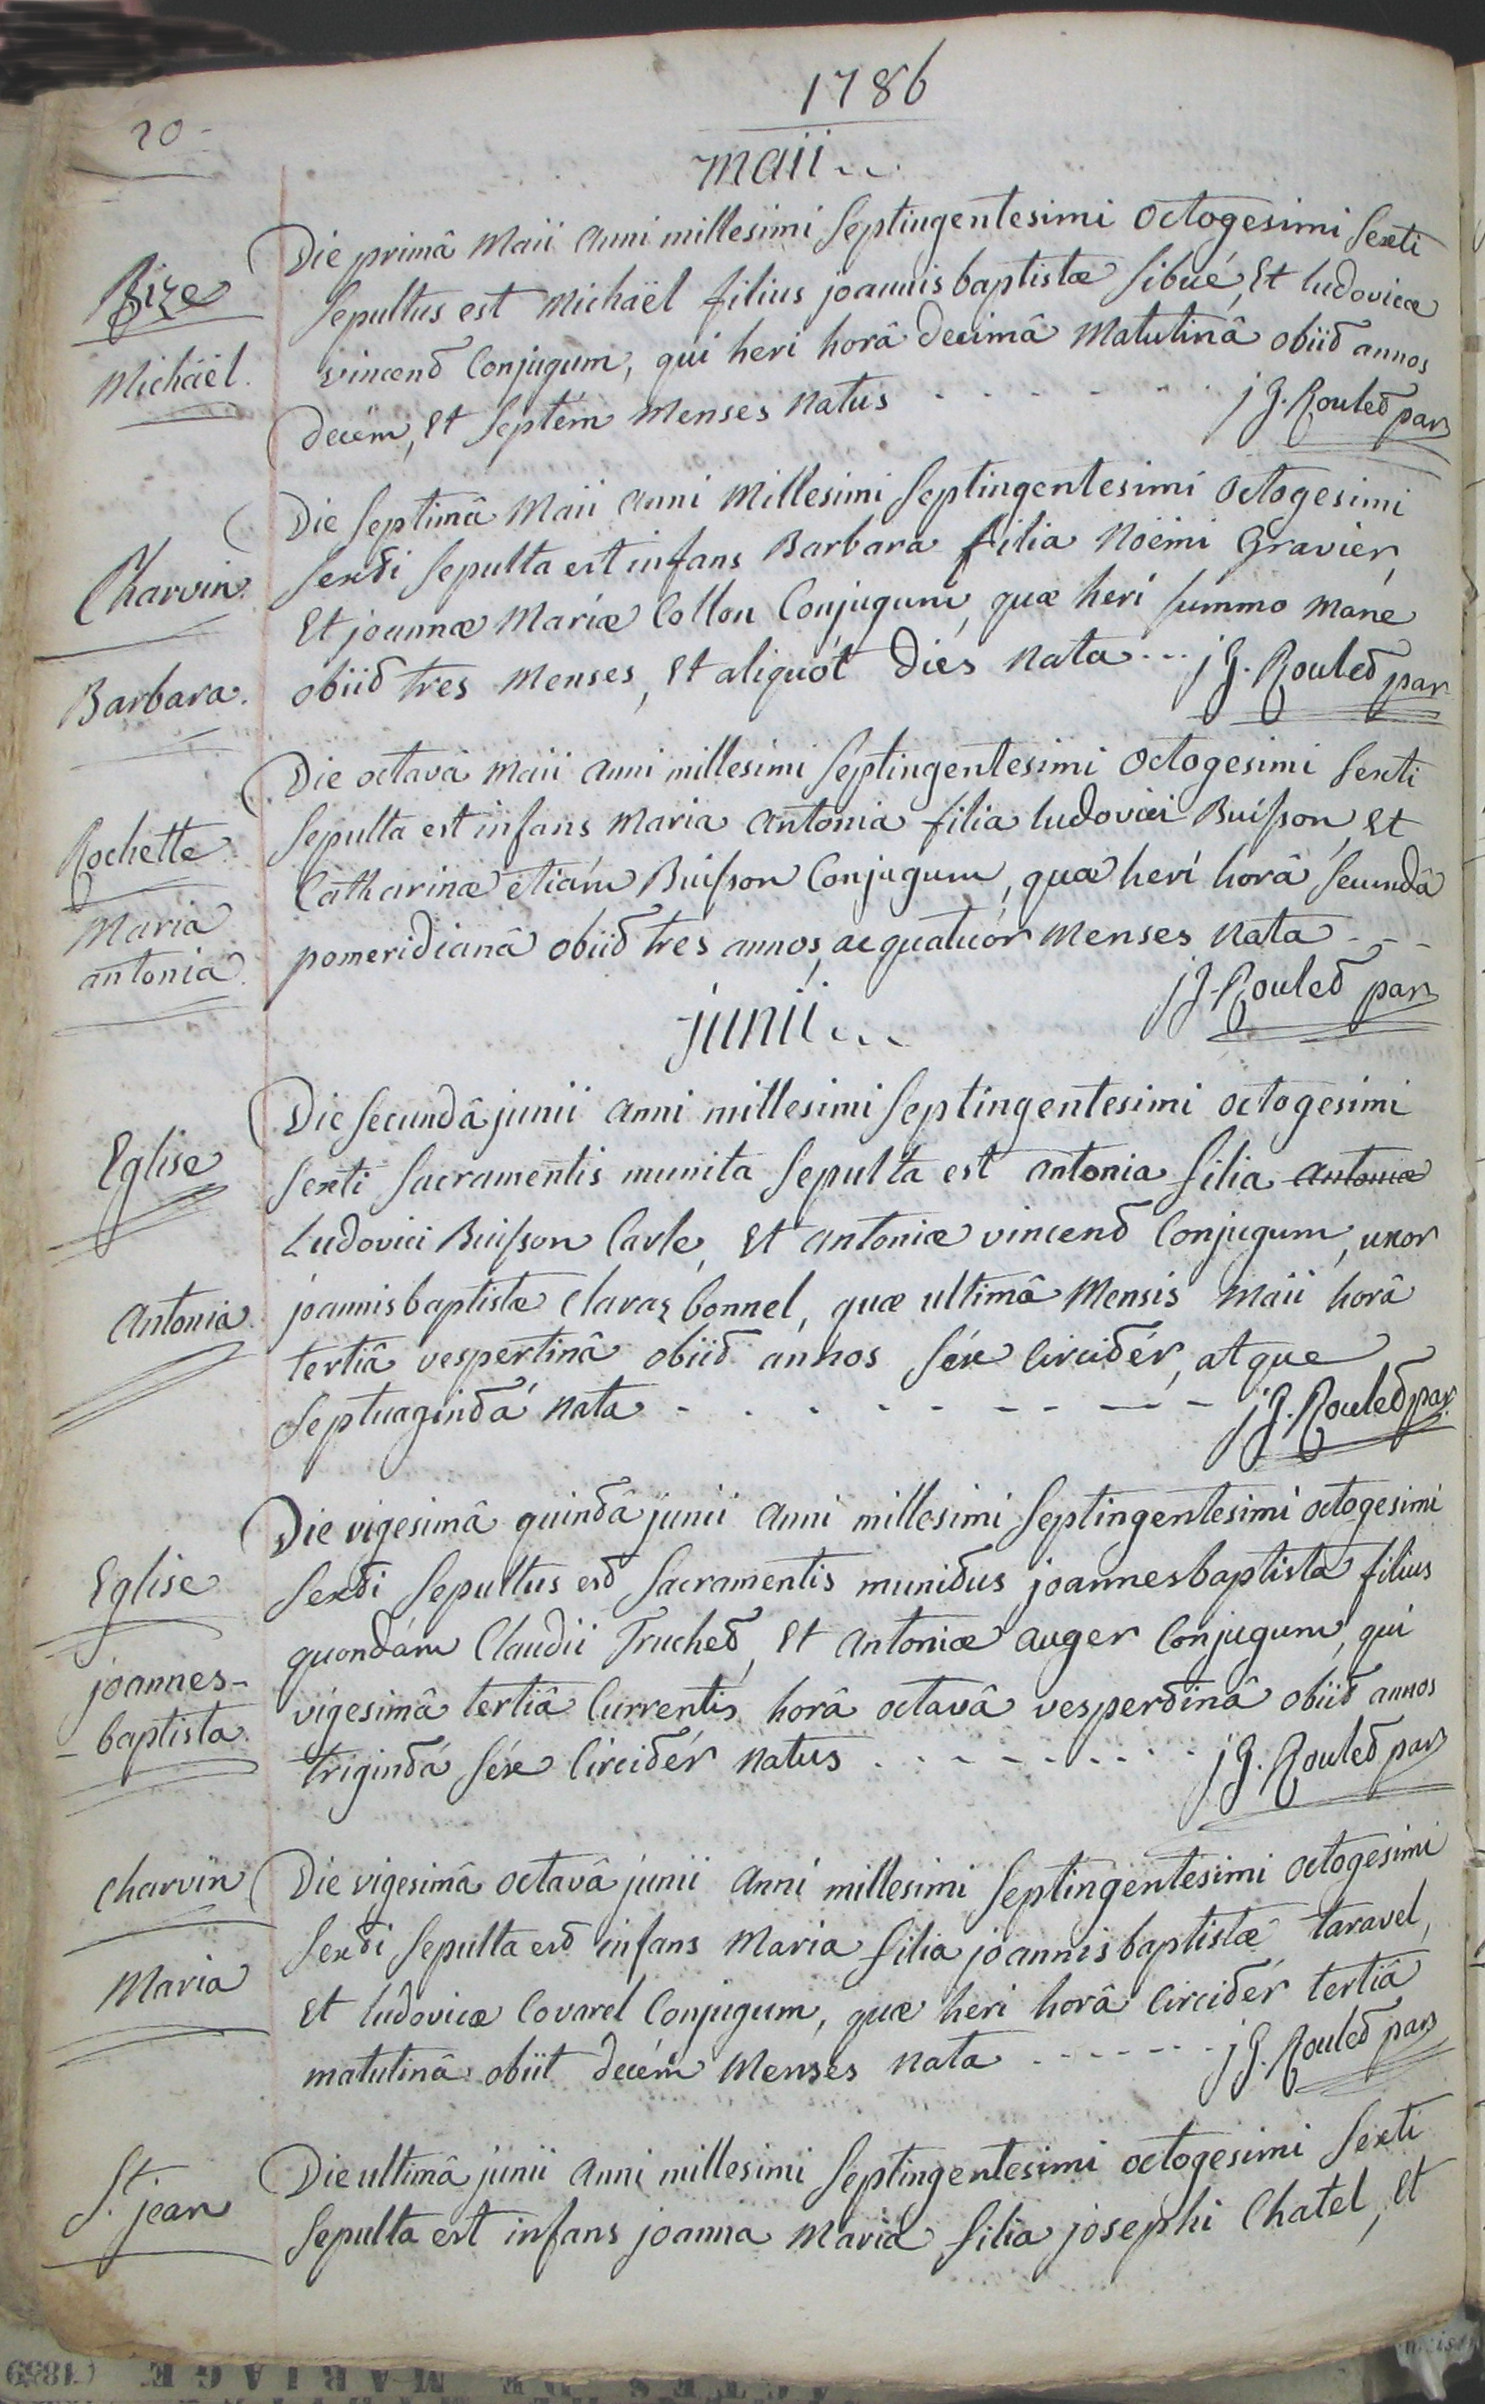 1786
20
maii...
Bize
Michäel.
Die primâ Maii anni millesimi septingentesimi octogesimi sexti
sepultus est Michäel filius joannis baptistæ sibué, Et ludovicæ
vincend Conjugum, qui heri horâ decimâ Matutinâ obiid annos
decém, Et septém Menses Natus
jG. Rouled par
Charvin.
Barbara.
Die septimâ Maii anni Millesimi septingentesimi octogesimi
sexdi sepulta est infans Barbara filia Noëmi Gravier,
Et joannæ Mariæ Collou Conjugum, quæ heri summo mane
obiid tres Menses, Et aliquót diés Nata... jG. Rouled par
Rochette
Maria
antonia.
Die octavâ maii anni millesimi septingentesimi octogesimi sexti
sepulta est infans Maria antonia filia ludovici Buisson, Et
Catharinæ etiám Buisson Conjugum, quæ heri horâ secundâ
pomeridianâ obiid tres annos, ac quatuór Menses Nata - - -
jG. Rouled par
junii...
Eglise
antonia.
Die secundâ junii anni millesimi septingentesimi octogesimi
sexti sacramentis munita sepulta est antonia filia antoniæ
Ludovici Buisson Carle, Et antoniæ vincend Conjugum, uxor
joannisbaptistæ Claraz bonnel, quæ ultimâ Mensis Maii horâ
tertiâ vespertinâ obiid annos séx circidér, atque
septuagindá nata - - - - - - - - - jG. Rouled par
Eglise
joannes-
- baptista.
Die vigesimâ quindâ junii anni millesimi septingentesimi octogesimi
sexdi sepultus esd sacramentis munidus joannesbaptista filius
quondám Claudii Truched, Et antoniæ auger Conjugum, qui
vigesimâ tertiâ Currentis horâ octavâ vesperdinâ obiid annos
trigindá séx Circidér Natus . . . . . . . jG. Rouled par
Charvin
Maria
Die vigesimâ octavâ junii anni millesimi septingentesimi octogesimi
sexdi sepulta esd infans Maria filia joannisbaptistæ taravel,
Et ludovicæ Covarel Conjugum, quæ heri horâ Circidér tertiâ
matutinâ obiit decém Menses Nata - - - - - - jG. Rouled par
St. jean
Die ultimâ junii anni millesimi septingentesimi octogesimi sexti
sepulta est infans joanna Maria filia josephi Chatel, Et
ACTES DE MARIAGE (1859